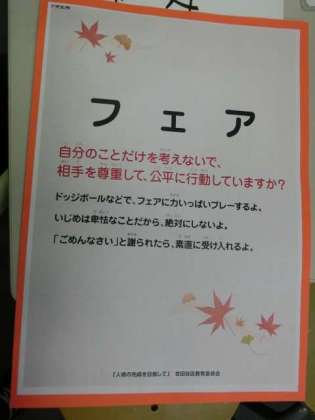 フェア
自分のことだけを考えないで、
相手を尊重して、公平に行動していますか？
ドッジボールなどで、フェアに力いっぱいプレーするよ。
いじめは卑怯なことだから、絶対にしないよ。
「ごめんなさい」と謝られたら、素直に受け入れるよ。
「人格の完成を目指して」 世田谷区教育委員会